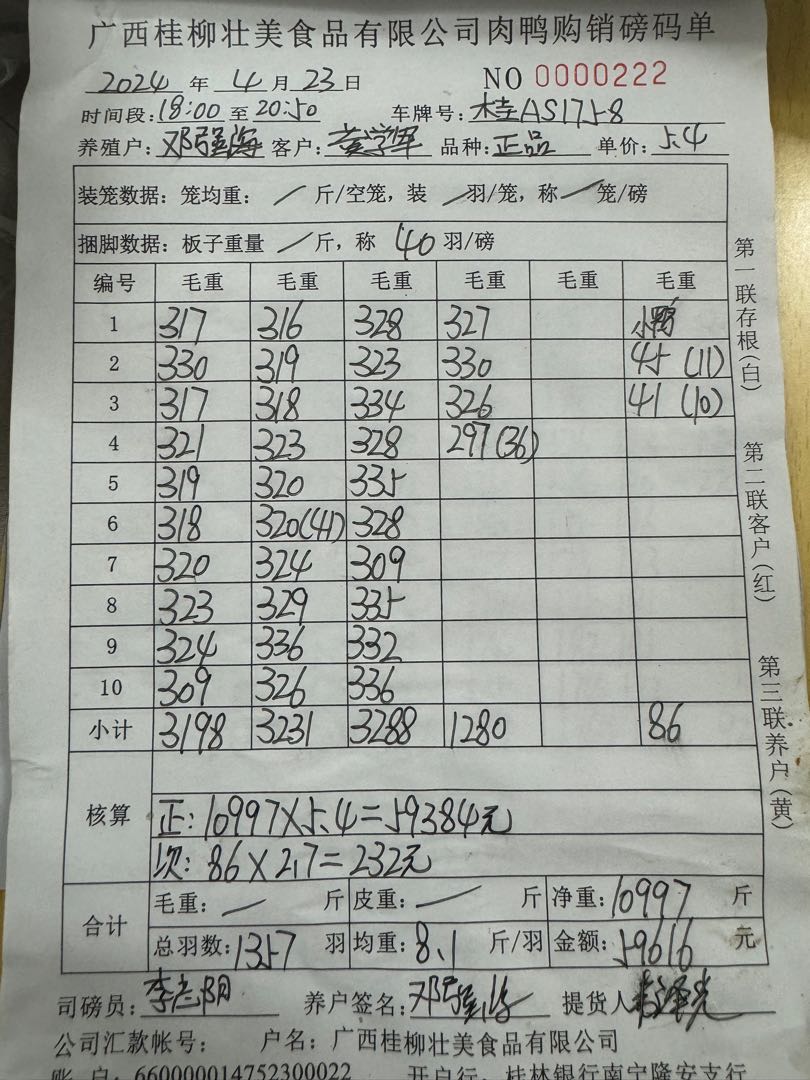 广西桂柳壮美食品有限公司肉鸭购销磅码单
2024 年 4 月 23 日 NO 0000222
时间段:18:00 至 20:50 车牌号: 桂AS1758
养殖户: 邓强海 客户: 黄学军 品种: 正品 单价: 5.4
装笼数据: 笼均重: / 斤/空笼, 装 / 羽/笼, 称 / 笼/磅
捆脚数据: 板子重量 / 斤, 称 40 羽/磅
编号 毛重 毛重 毛重 毛重 毛重 毛重
1 317 316 328 327 小鸭
2 330 319 323 330 45 (11)
3 317 318 334 326 41 (10)
4 321 323 328 297(36)
5 319 320 335
6 318 320(41) 328
7 320 324 309
8 323 329 335
9 324 336 332
10 309 326 336
小计 3198 3231 3288 1280 86
核算
正: 10997X5.4=59384元
次: 86X2.7=232元
合计
毛重: / 斤 皮重: / 斤 净重: 10997 斤
总羽数: 1357 羽 均重: 8.1 斤/羽 金额: 59616 元
司磅员: 李志阳 养户签名: 邓强海 提货人
公司汇款帐号: 户名: 广西桂柳壮美食品有限公司
账 户: 660000014752300022 开户行: 桂林银行南宁隆安支行
第一联存根(白)
第二联客户(红)
第三联养户(黄)